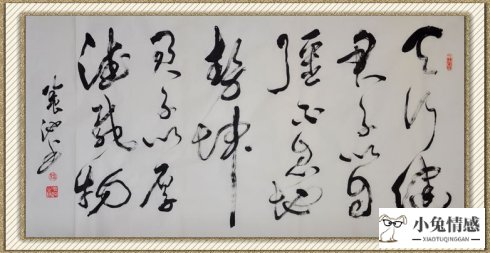 天行健
君子以自
彊不息地
势坤
君子以厚
德载物
小兔情感
XIAOTUQINGGAN